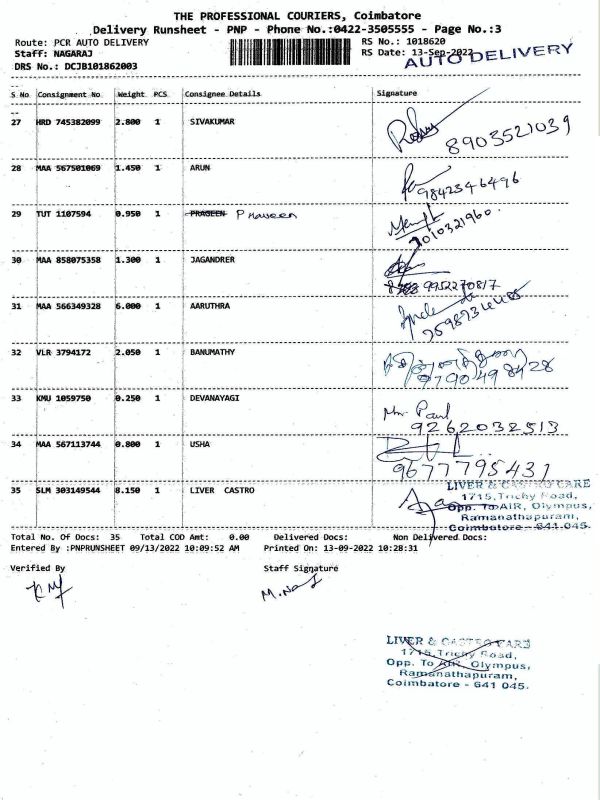 THE PROFESSIONAL COURIERS, Coimbatore
Delivery Runsheet - PNP - Phone No.:0422-3505555 - Page No.:3
Route: PCR AUTO DELIVERY RS No.: 1018620
Staff: NAGARAJ RS Date: 13-Sep-2022
DRS No.: DCJB101862003 AUTO DELIVERY
S No Consignment No Weight PCS Consignee Details Signature
27 HRD 745382099 2.800 1 SIVAKUMAR
8903521039
28 MAA 567501069 1.450 1 ARUN
9842346496
29 TUT 1107594 0.950 1 PRAGEEN Praveen
7010321960.
30 MAA 858075358 1.300 1 JAGANDRER
9952270817
31 MAA 566349328 6.000 1 AARUTHRA
32 VLR 3794172 2.050 1 BANUMATHY
9790498428
33 KMU 1059750 0.250 1 DEVANAYAGI
Mr. Paul
9262032513
34 MAA 567113744 0.800 1 USHA
9677795431
35 SLM 303149544 8.150 1 LIVER CASTRO
LIVER & CASTRO CARE
1715, Trichy Road,
Opp. To AIR, Olympus,
Ramanathapuram,
Coimbatore - 641 045.
Total No. Of Docs: 35 Total COD Amt: 0.00 Delivered Docs: Non Delivered Docs:
Entered By :PNPRUNSHEET 09/13/2022 10:09:52 AM Printed On: 13-09-2022 10:28:31
Verified By Staff Signature
LIVER & CASTRO CARE
1715, Trichy Road,
Opp. To AIR, Olympus,
Ramanathapuram,
Coimbatore - 641 045.